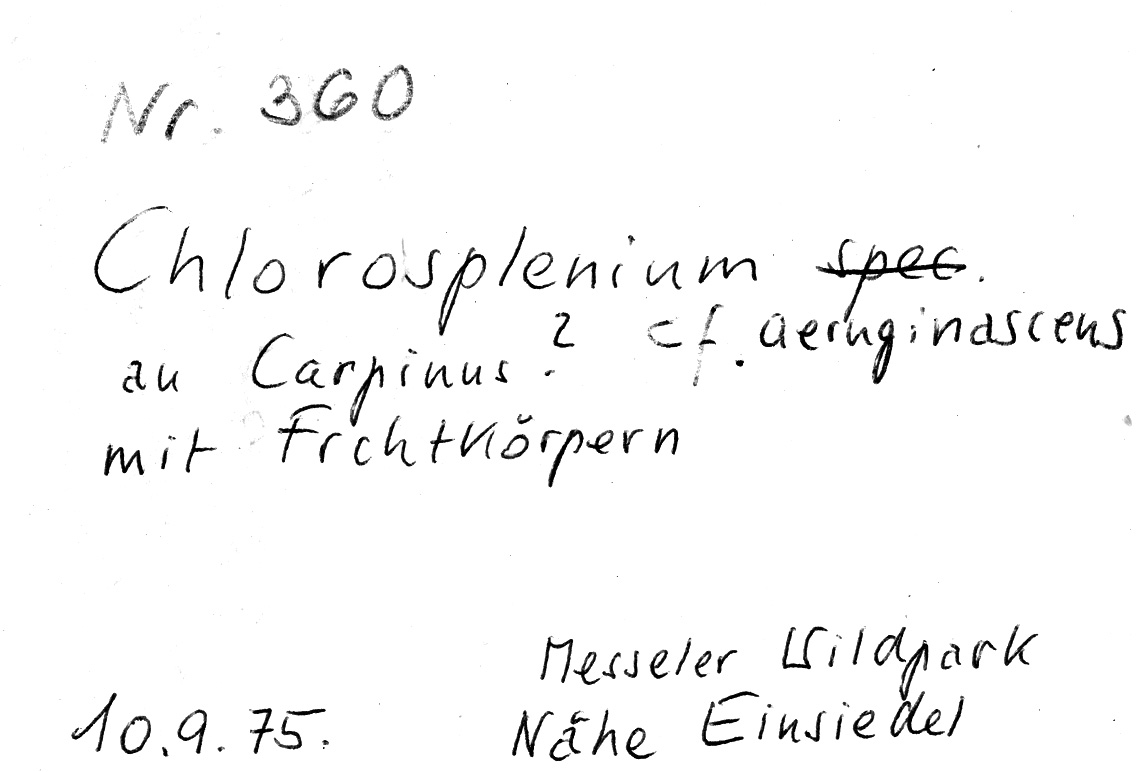 Nr. 360
Chlorosplenium spec.
cf. aeruginascens
an Carpinus?
mit Frchtkörpern
Messeler Wildpark
10.9.75. Nähe Einsiedel